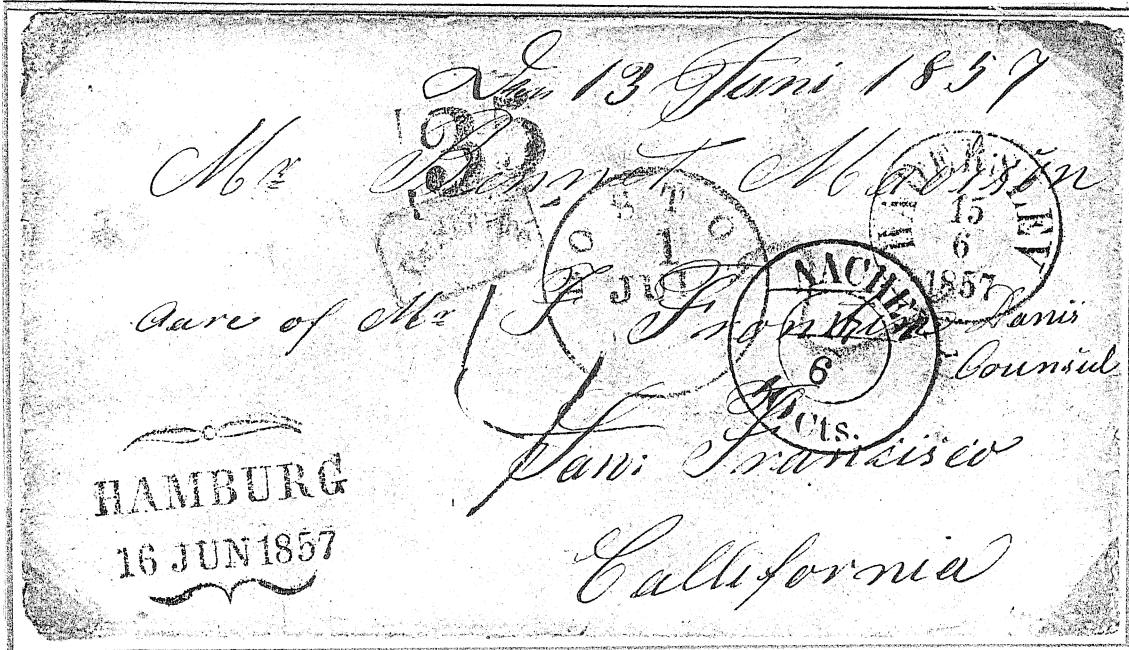 Den 13 Juni 1857
35
Mr Bennet Madisin
HADERSLEV
15
6
1857
BOSTON
1
JUL
AACHEN
17
6
Cts.
Caare of Mr F Frontin Danis
Counsul
San: Francisco
Callifornia
HAMBURG
16 JUN 1857